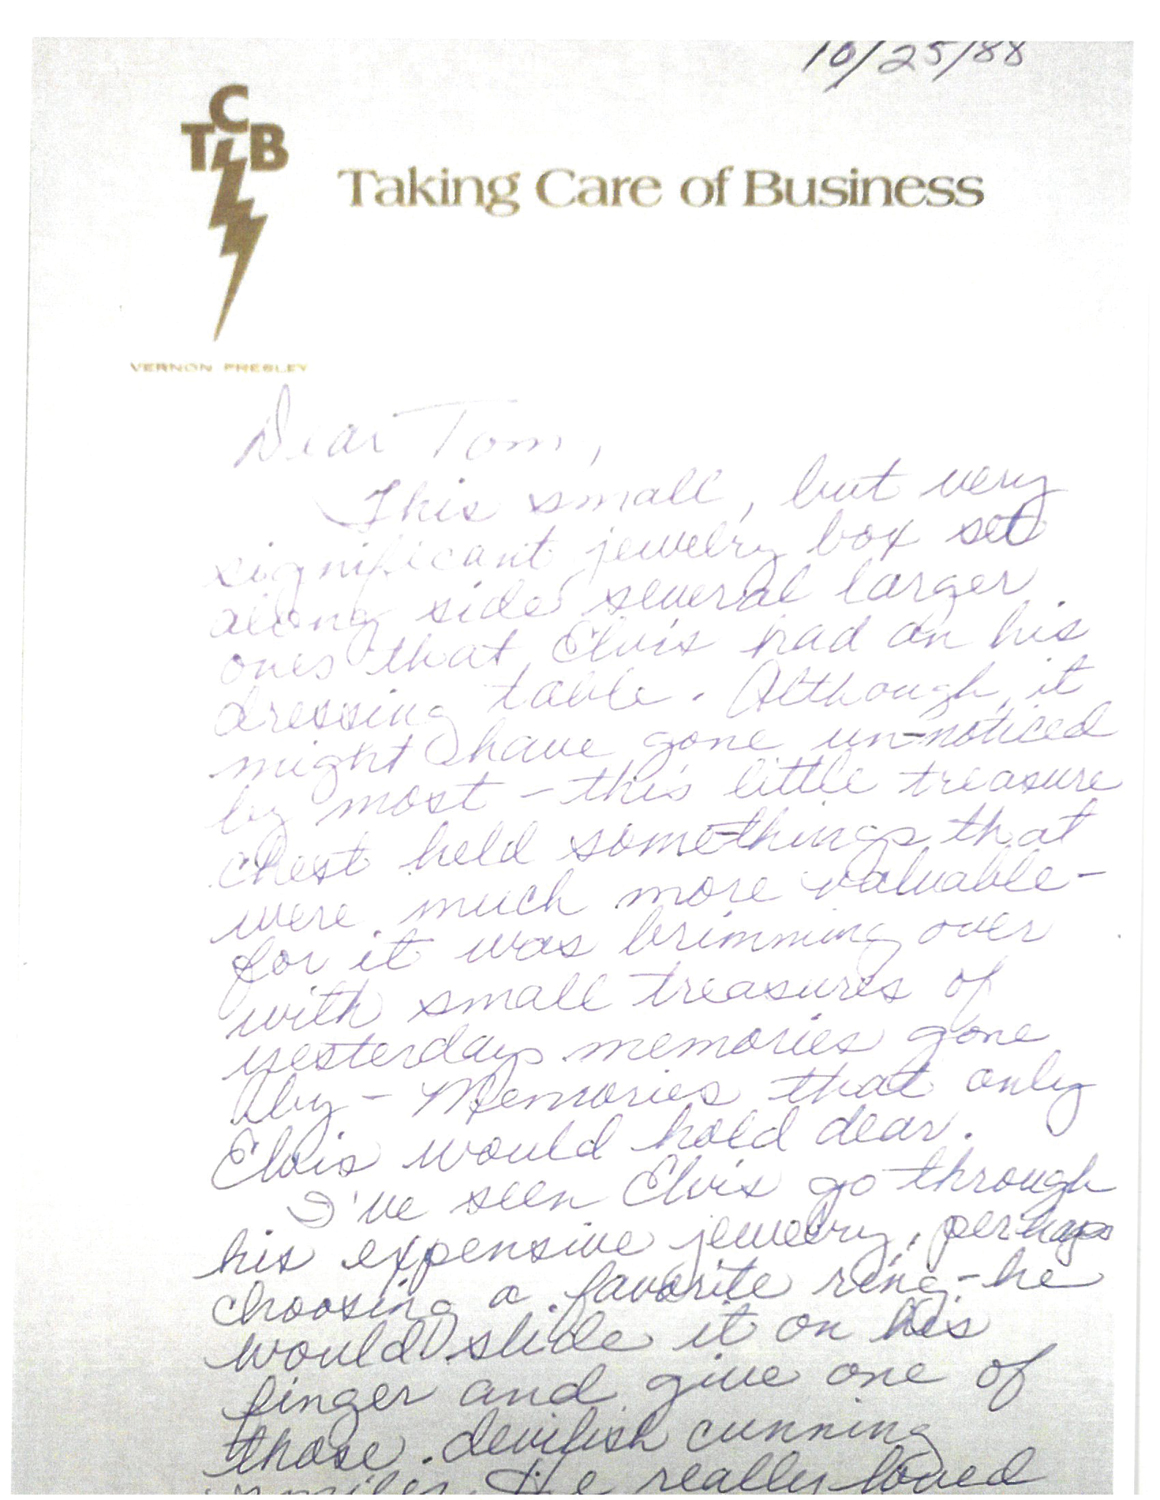 10/25/88
TCB
Taking Care of Business
VERNON PRESLEY
Dear Tom,
This small, but very
significant jewelry box set
along side several larger
ones that Elvis had on his
dressing table. Although, it
might have gone un-noticed
by most - this little treasure
chest held somethings that
were much more valuable -
for it was brimming over
with small treasures of
yesterdays memories gone
by - Memories that only
Elvis would hold dear.
I've seen Elvis go through
his expensive jewelry, perhaps
choosing a favorite ring - he
would slide it on his
finger and give one of
those devilish cunning
smiles. He really loved